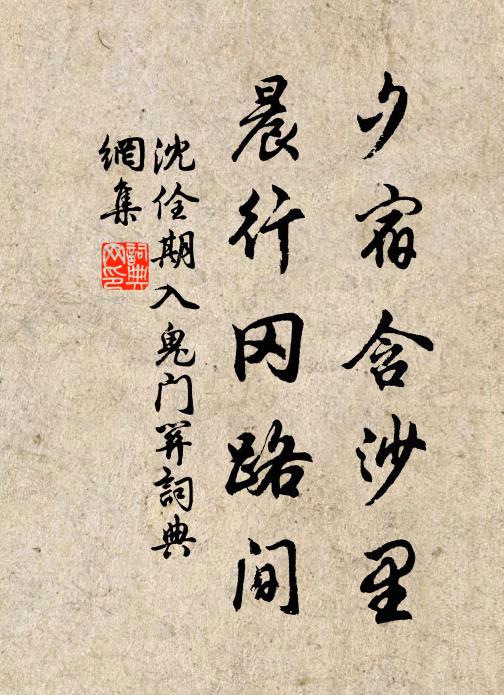 夕宿含沙里
晨行冈路间
沈佺期入鬼门关詞典
網集
詞典
网印